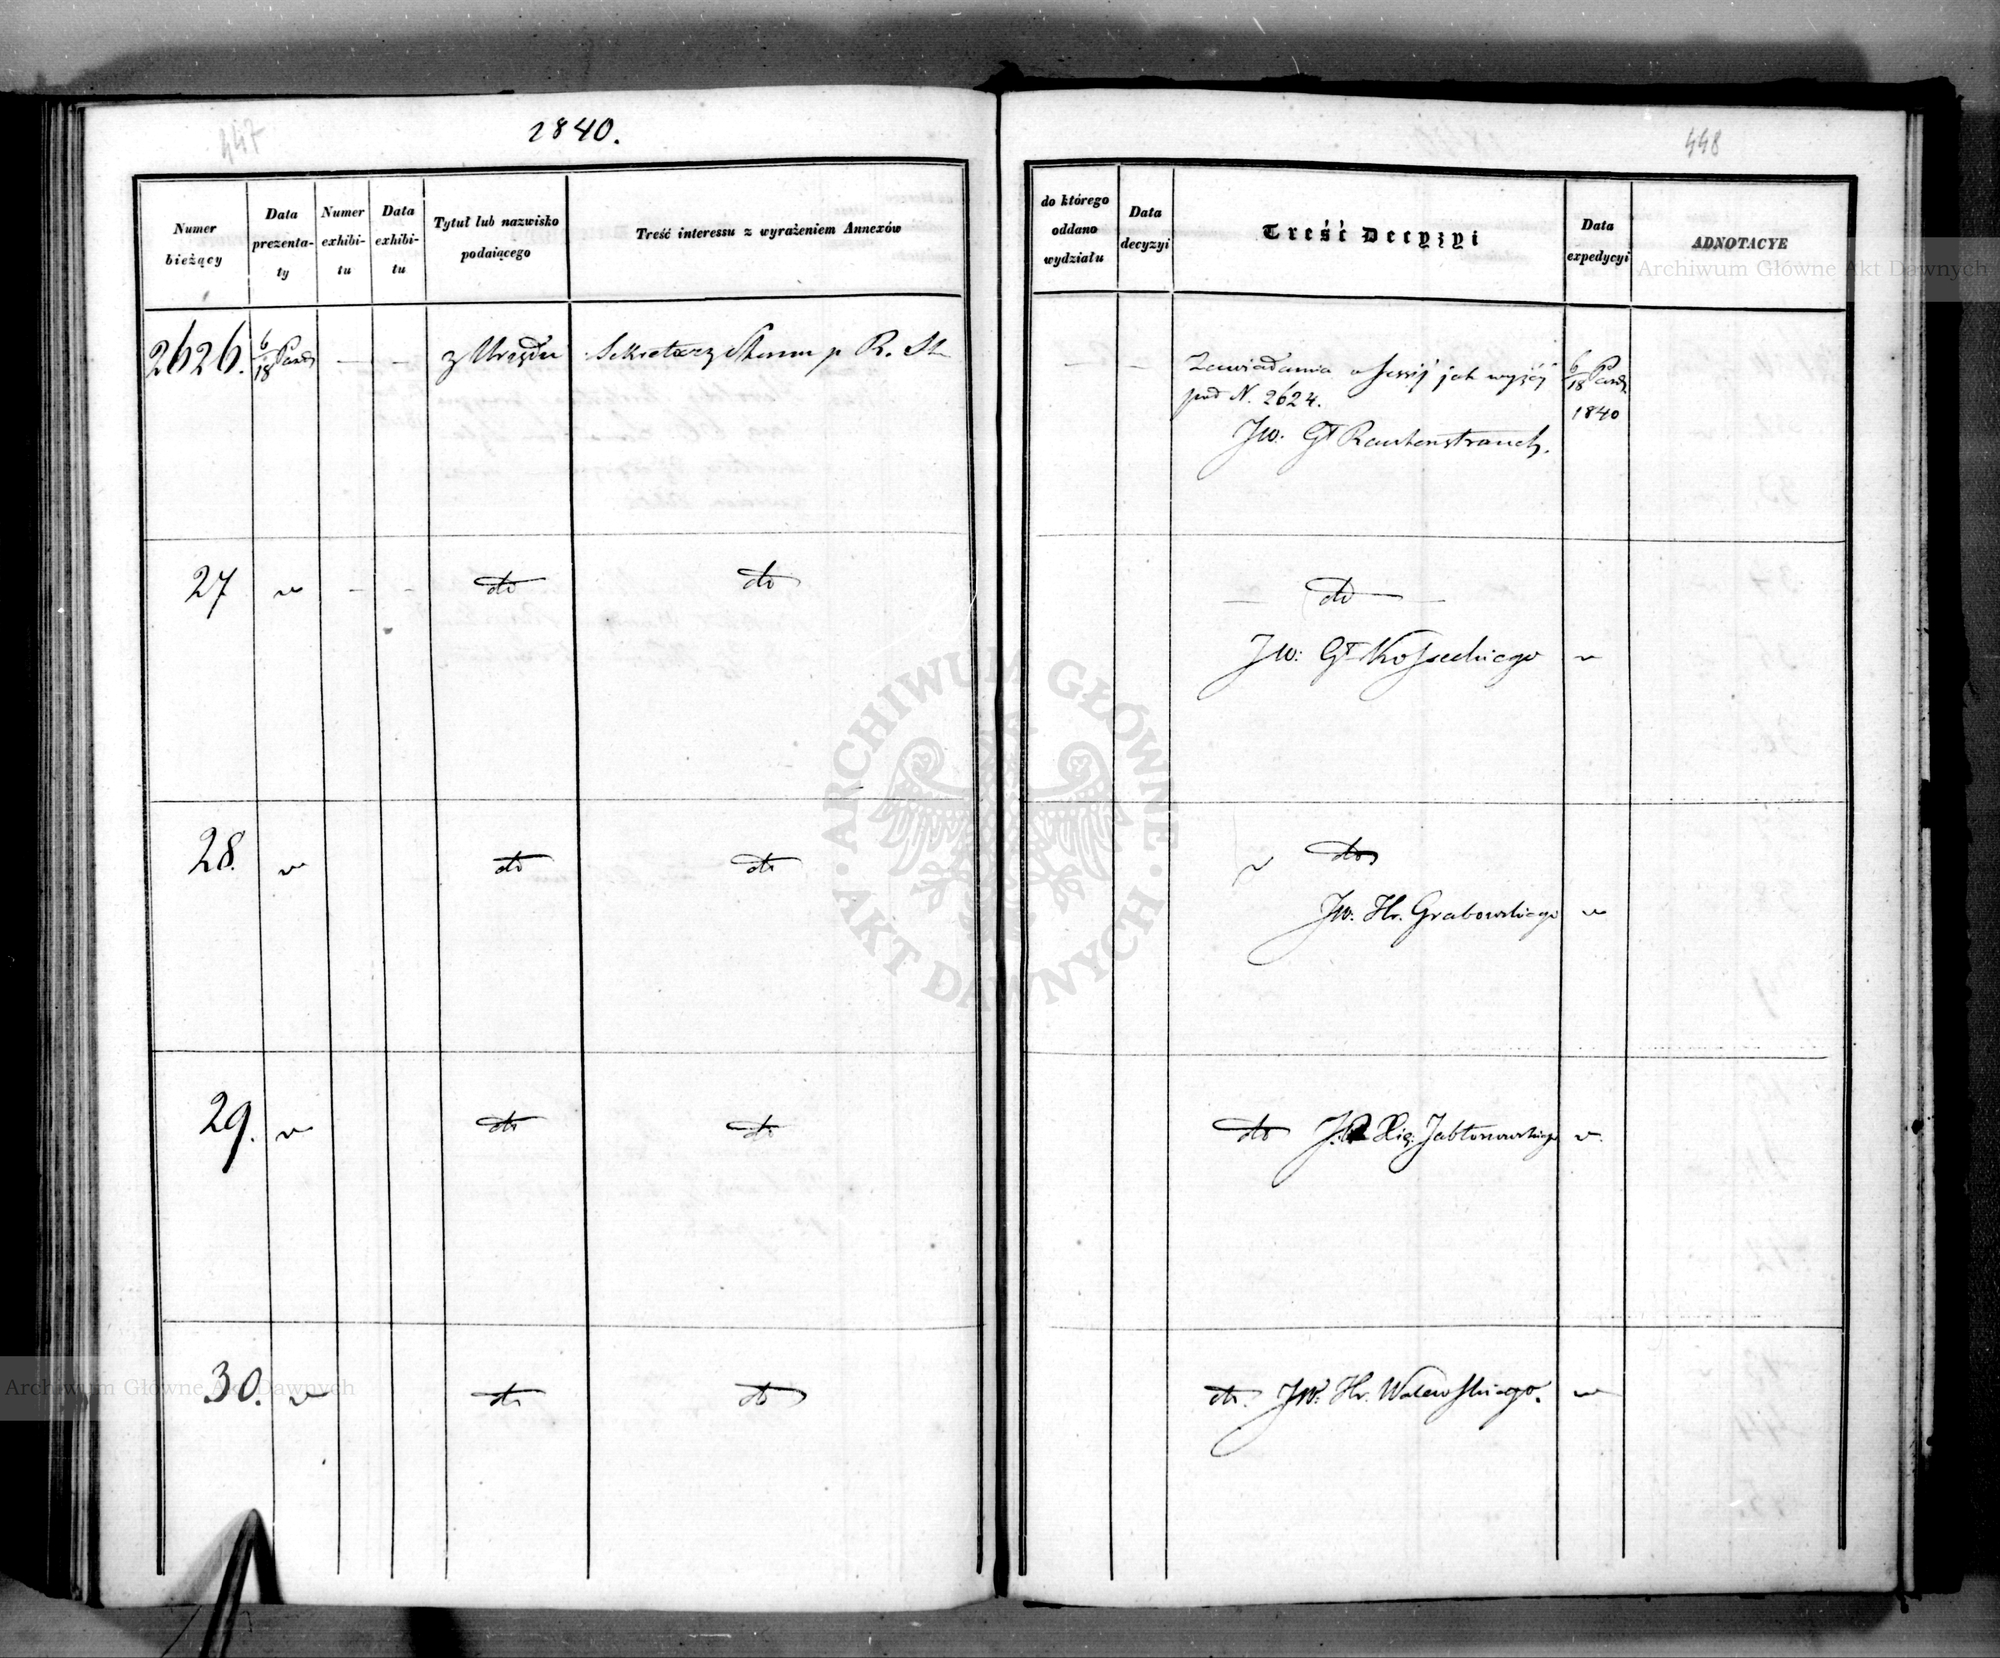 447
1840.
Numer bieżący
Data prezenta-ty
Numer exhibi-tu
Data exhibi-tu
Tytuł lub nazwisko podaiącego
Treść interessu z wyrażeniem Annexów
2626. 6/18 Paźd — — z Urzędu Sekretarz Stanu p R. St
27 — — do do
28. do do
29. do do
30. do do
448
do którego oddano wydziału
Data decyzyi
Treść Decyzyi
Data expedycyi
ADNOTACYE
— — Zawiadamia o sessij jak wyżéj 6/18 Paźd
pod N. 2624. 1840
JW. Gł Rautenstrauch.
— do —
JW: Gł Kosseckiego
do
JW. Hr. Grabowskiego
do Xię: Jabłonowskiego
do. JW: Hr. Walewskiego.
Archiwum Główne Akt Dawnych
ARCHIWUM GŁÓWNE · AKT DAWNYCH ·
Archiwum Główne Akt Dawnych